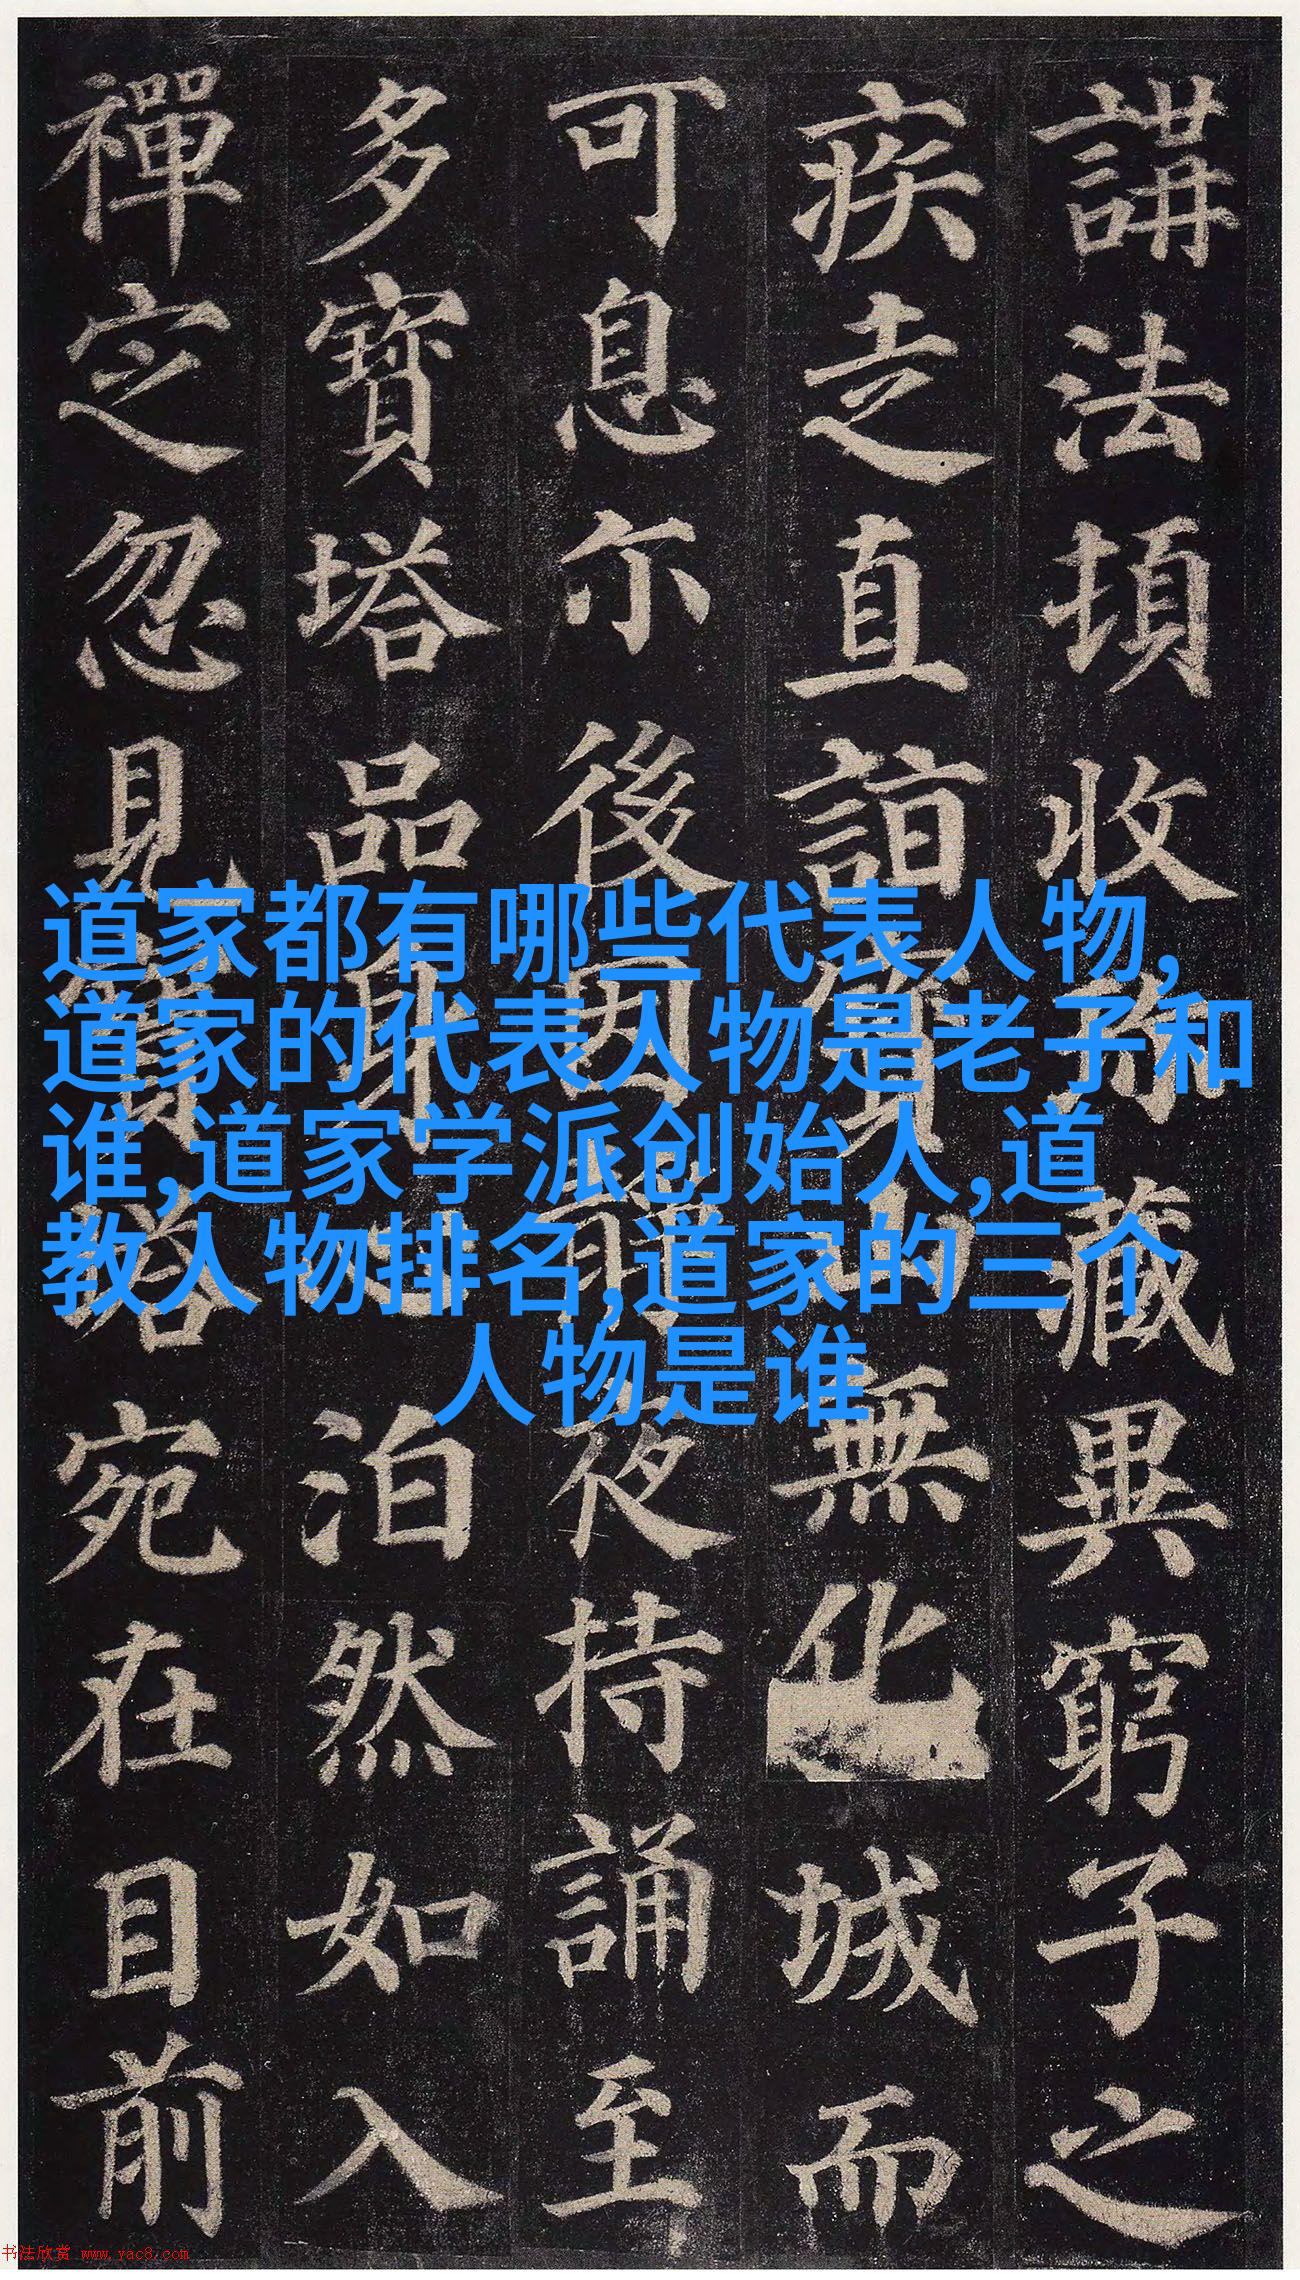 講法頓收珎藏異窮子之
疾走直詣寶山無化城而
可息尒後因靜夜持誦至
多寶塔品身心泊然如入
禪定忽見寶塔宛在目前
道家都有哪些代表人物,
道家的代表人物是老子和
谁,道家学派创始人,道
教人物排名,道家的三个
人物是谁
书法欣赏 www.yac8.com